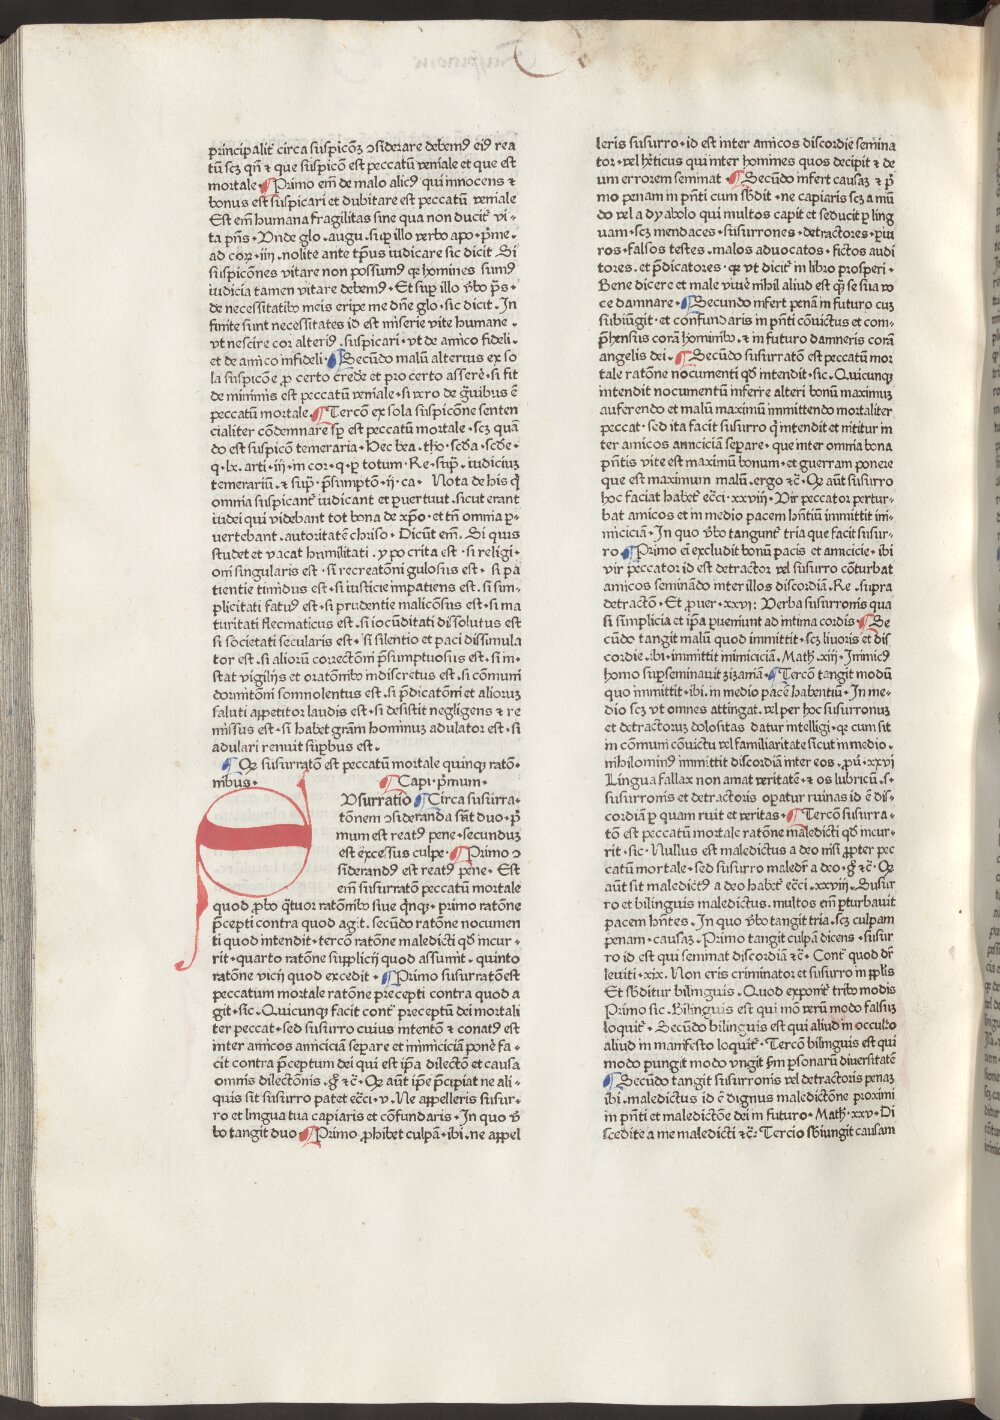 principalit᷑ circa suspicõꝫ ↄsiderare debemꝰ eiꝰ rea
tũ scꝫ qñ ⁊ que suspicõ est peccatũ veniale et que est
mortale. ¶Primo em̃ de malo alicꝰ qui innocens ⁊
bonus est suspicari et dubitare est peccatũ veniale
Est em̃ humana fragilitas sine qua non ducit᷑ vi-
ta pñs. Vnde glo. augu. suꝑ illo verbo apo. p̃me.
ad cor̃. iiii. nolite ante tp̃us iudicare sic dicit Si
suspicõnes vitare non possumꝰ qꝛ homines sumꝰ
iudicia tamen vitare debemꝰ. Et suꝑ illo v̾bo p̃s.
de necessitatibꝰ meis eripe me dñe glo. sic dicit. In
finite sunt necessitates id est miserie vite humane.
vt nescire cor alteriꝰ. suspicari. vt de amico fideli.
et de amico infideli. ¶Secũdo malũ alterius ex so
la suspicõe ꝓ certo crede᷑ et pro certo assere᷑. si fit
de minimis est peccatũ veniale. si vero de g̃uibus ẽ
peccatũ mortale. ¶Tercõ ex sola suspicõne senten
cialiter cõdemnare sꝑ est peccatũ mortale. scꝫ quã
do est suspicõ temeraria. Hec bea. tho. scd̃a. scd̃e.
q. lx. arti. iii. in cor. q. ꝑ totum. Re. suꝑ. iudiciuꝫ
temerariũ. ⁊ suꝑ. p̃sumptõ. ij. ca. Nota de his q̃
omnia suspicant᷑ iudicant et ꝑuertuut. sicut erant
iudei qui videbant tot bona de xp̃o. et tñ omnia ꝑ-
vertebant. autoritatem chriso. Dicũt em̃. Si quis
studet et vacat humilitati. ypocrita est. si religi-
oni singularis est. si recreatõni gulosus est. si pa
tientie timidus est. si iusticie impatiens est. si sim-
plicitati fatuꝰ est. si prudentie malicõsus est. si ma
turitati flecmaticus est. si iocũditati dissolutus est
si societati secularis est. si silentio et paci dissimula
tor est. si alioruꝫ correctõni p̃sumptuosus est. si in-
stat vigilijs et oratõnibꝰ indiscretus est. si cõmuni
dormitõni somnolentus est. si p̃dicatõni et alioruꝫ
saluti appetitor laudis est. si desistit negligens ⁊ re
missus est. si habet grãm hominuꝫ adulator est. si
adulari renuit suꝑbus est.
¶Qꝙ susurratõ est peccatũ mortale quinqꝫ ratõ-
nibus. ¶Capi. p̃mum.
SVsurratio ¶Circa susurra-
tõnem ↄsideranda sũt duo. p̃
mum est reatꝰ pene. secunduꝫ
est excessus culpe. ¶Primo ↄ
siderandꝰ est reatꝰ pene. Est
em̃ susurratõ peccatũ mortale
quod ꝓbo q̃tuor ratõnibꝰ siue q̃nqꝫ. primo ratõne
p̃cepti contra quod agit. secũdo ratõne nocumen
ti quod intendit. tercõ ratõne maledicti qd̾ incur-
rit. quarto ratõne supplicij quod assumit. quinto
ratõne vicij quod excedit. ¶Primo susurratõ est
peccatum mortale ratõne precepti contra quod a
git. sic. Quicunqꝫ facit cont᷑ preceptũ dei mortali
ter peccat. sed susurro cuius intentõ ⁊ conatꝰ est
inter amicos amiciciã seꝑare et inimiciciã pone᷑ fa-
cit contra p̃ceptum dei qui est ip̃a dilectõ et causa
omnis dilectõnis. g̊ ⁊c̃. Qꝙ aũt ip̃e p̃cipiat ne ali-
quis sit susurro patet ecc̃i. v. Ne appelleris susur-
ro et lingua tua capiaris et cõfundaris. In quo v̾
bo tangit duo. ¶Primo ꝓhibet culpã. ibi. ne appel
leris susurro. id est inter amicos discordie semina
tor. vel h̾eticus qui inter homines quos decipit ⁊ de
um errorem seminat. ¶Secũdo infert causaꝫ ⁊ p̃
mo penam in pñti cum sb̾dit. ne capiaris scꝫ a mũ
do vel a dyabolo qui multos capit et seducit ꝑ ling
uam. scꝫ mendaces. susurrones. detractores. ꝑiu
ros. falsos testes. malos aduocatos. fictos audi
tores. et p̃dicatores. qꝛ vt dicit᷑ in libro prosperi.
Bene dicere et male viue᷑ nihil aliud est q̃ꝫ se sua vo
ce damnare. ¶Secundo infert penã in futuro cuꝫ
subiũgit. et confundaris in pñti cõuictus et com-
p̾hensus corã hominibꝰ. ⁊ in futuro damneris corã
angelis dei. ¶Secũdo susurratõ est peccatũ mor
tale ratõne nocumenti qd̾ intendit. sic. Quicunqꝫ
intendit nocumentũ inferre alteri bonũ maximuꝫ
auferendo et malũ maximũ immittendo mortaliter
peccat. sed ita facit susurro q̃ intendit et nititur in
ter amicos amiciciã seꝑare. que inter omnia bona
pñtis vite est maximũ bonum. et guerram ponere
que est maximum malũ. ergo ⁊c̃. Qꝙ aũt susurro
hoc faciat habet᷑ ecc̃i. xxviij. Vir peccator pertur-
bat amicos et in medio pacem hñtiũ immittit ini-
miciciã. In quo v̾bo tangunt᷑ tria que facit susur-
ro. ¶Primo em̃ excludit bonũ pacis et amicicie. ibi
vir peccator id est detractor vel susurro cõturbat
amicos seminãdo inter illos discordiã. Re. supra
detractõ. Et ꝓuer. xxvi: Verba susurronis qua
si simplicia et ip̃a ꝑueniunt ad intima cordis. ¶Se
cũdo tangit malũ quod immittit. scꝫ liuoris et dis
cordie. ibi. immittit inimiciciã. Math̾. xiij. Inimicꝰ
homo suꝑseminauit zizaniã. ¶Tercõ tangit modũ
quo immittit. ibi. in medio pacẽ habentiũ. In me-
dio scꝫ vt omnes attingat. vel per hoc susurronuꝫ
et detractoruꝫ dolositas datur intelligi. qꝛ cum sit
in cõmuni cõuictu vel familiaritate sicut in medio.
nihilominꝰ immittit discordiã inter eos. ꝓũ. xxvi
Lingua fallax non amat veritatẽ. ⁊ os lubricũ. s.
susurronis et detractoris oꝑatur ruinas id ẽ dis-
cordiã ꝑ quam ruit et veritas. ¶Tercõ susurra-
tõ est peccatũ mortale ratõne maledicti qd̾ incur-
rit. sic. Nullus est maledictus a deo nisi ꝓpter pec
catũ mortale. sed susurro maledr̃ a deo. g̊ ⁊c̃. Qꝙ
aũt sit maledictꝰ a deo habet᷑ ecc̃i. xxviij. Susur
ro et bilinguis maledictus. multos em̃ ꝑturbauit
pacem hñtes. In quo v̾bo tangit tria. scꝫ culpam
penam. causaꝫ. Primo tangit culpã dicens. susur
ro id est qui seminat discordiã ⁊c̃. Cont᷑ quod dr̃
leuiti. xix. Non eris criminator et susurro in pp̃lis
Et sb̾ditur bilinguis. Quod exponit᷑ tribꝰ modis
Primo sic. Bilinguis est qui mõ verũ modo falsuꝫ
loquit᷑. Secũdo bilinguis est qui aliud in occulto
aliud in manifesto loquit᷑. Tercõ bilinguis est qui
modo pungit modo vngit ẜm ꝑsonarũ diuersitatẽ
¶Secũdo tangit susurronis vel detractoris penaꝫ
ibi. maledictus id ẽ dignus maledictõne proximi
in pñti et maledictõne dei in futuro. Math̾. xxv. Di
scedite a me maledicti ⁊c̃: Tercio sb̾iungit causam